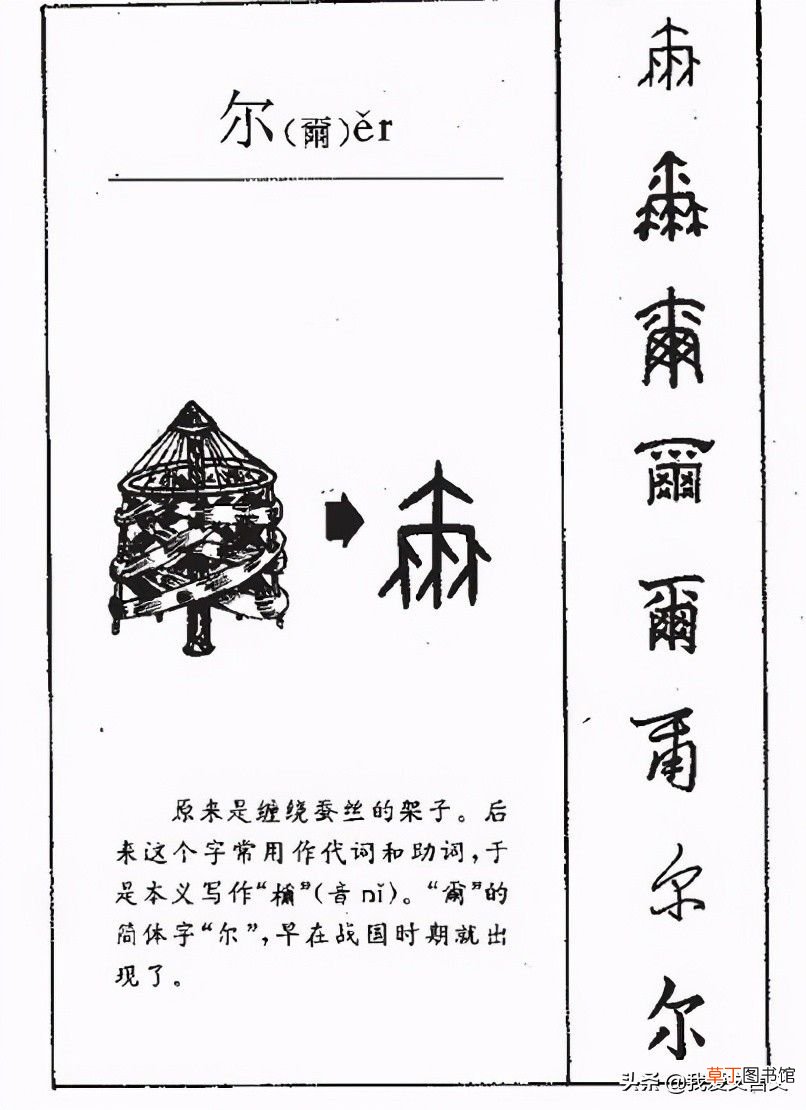 尔(爾)ěr
原来是缠绕蚕丝的架子。后
来这个字常用作代词和助词,于
是本义写作“檷”(音nǐ)。“爾”的
简体字“尔”,早在战国时期就出
现了。
爾
爾
爾
爾
爾
爾
尔
尔
头条 @我爱文言文
草丁图书馆